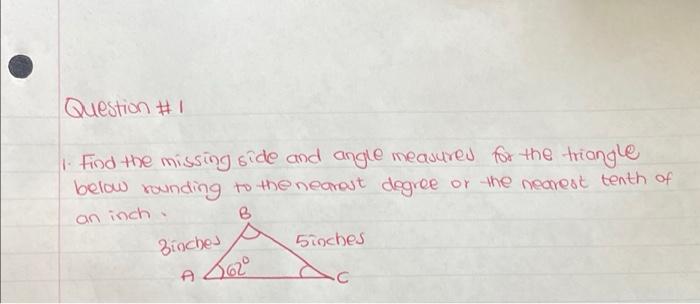 Question #1
1. Find the missing side and angle measured for the triangle
below rounding to the nearest degree or the nearest tenth of
an inch.
B
3inches 5inches
A 62° C